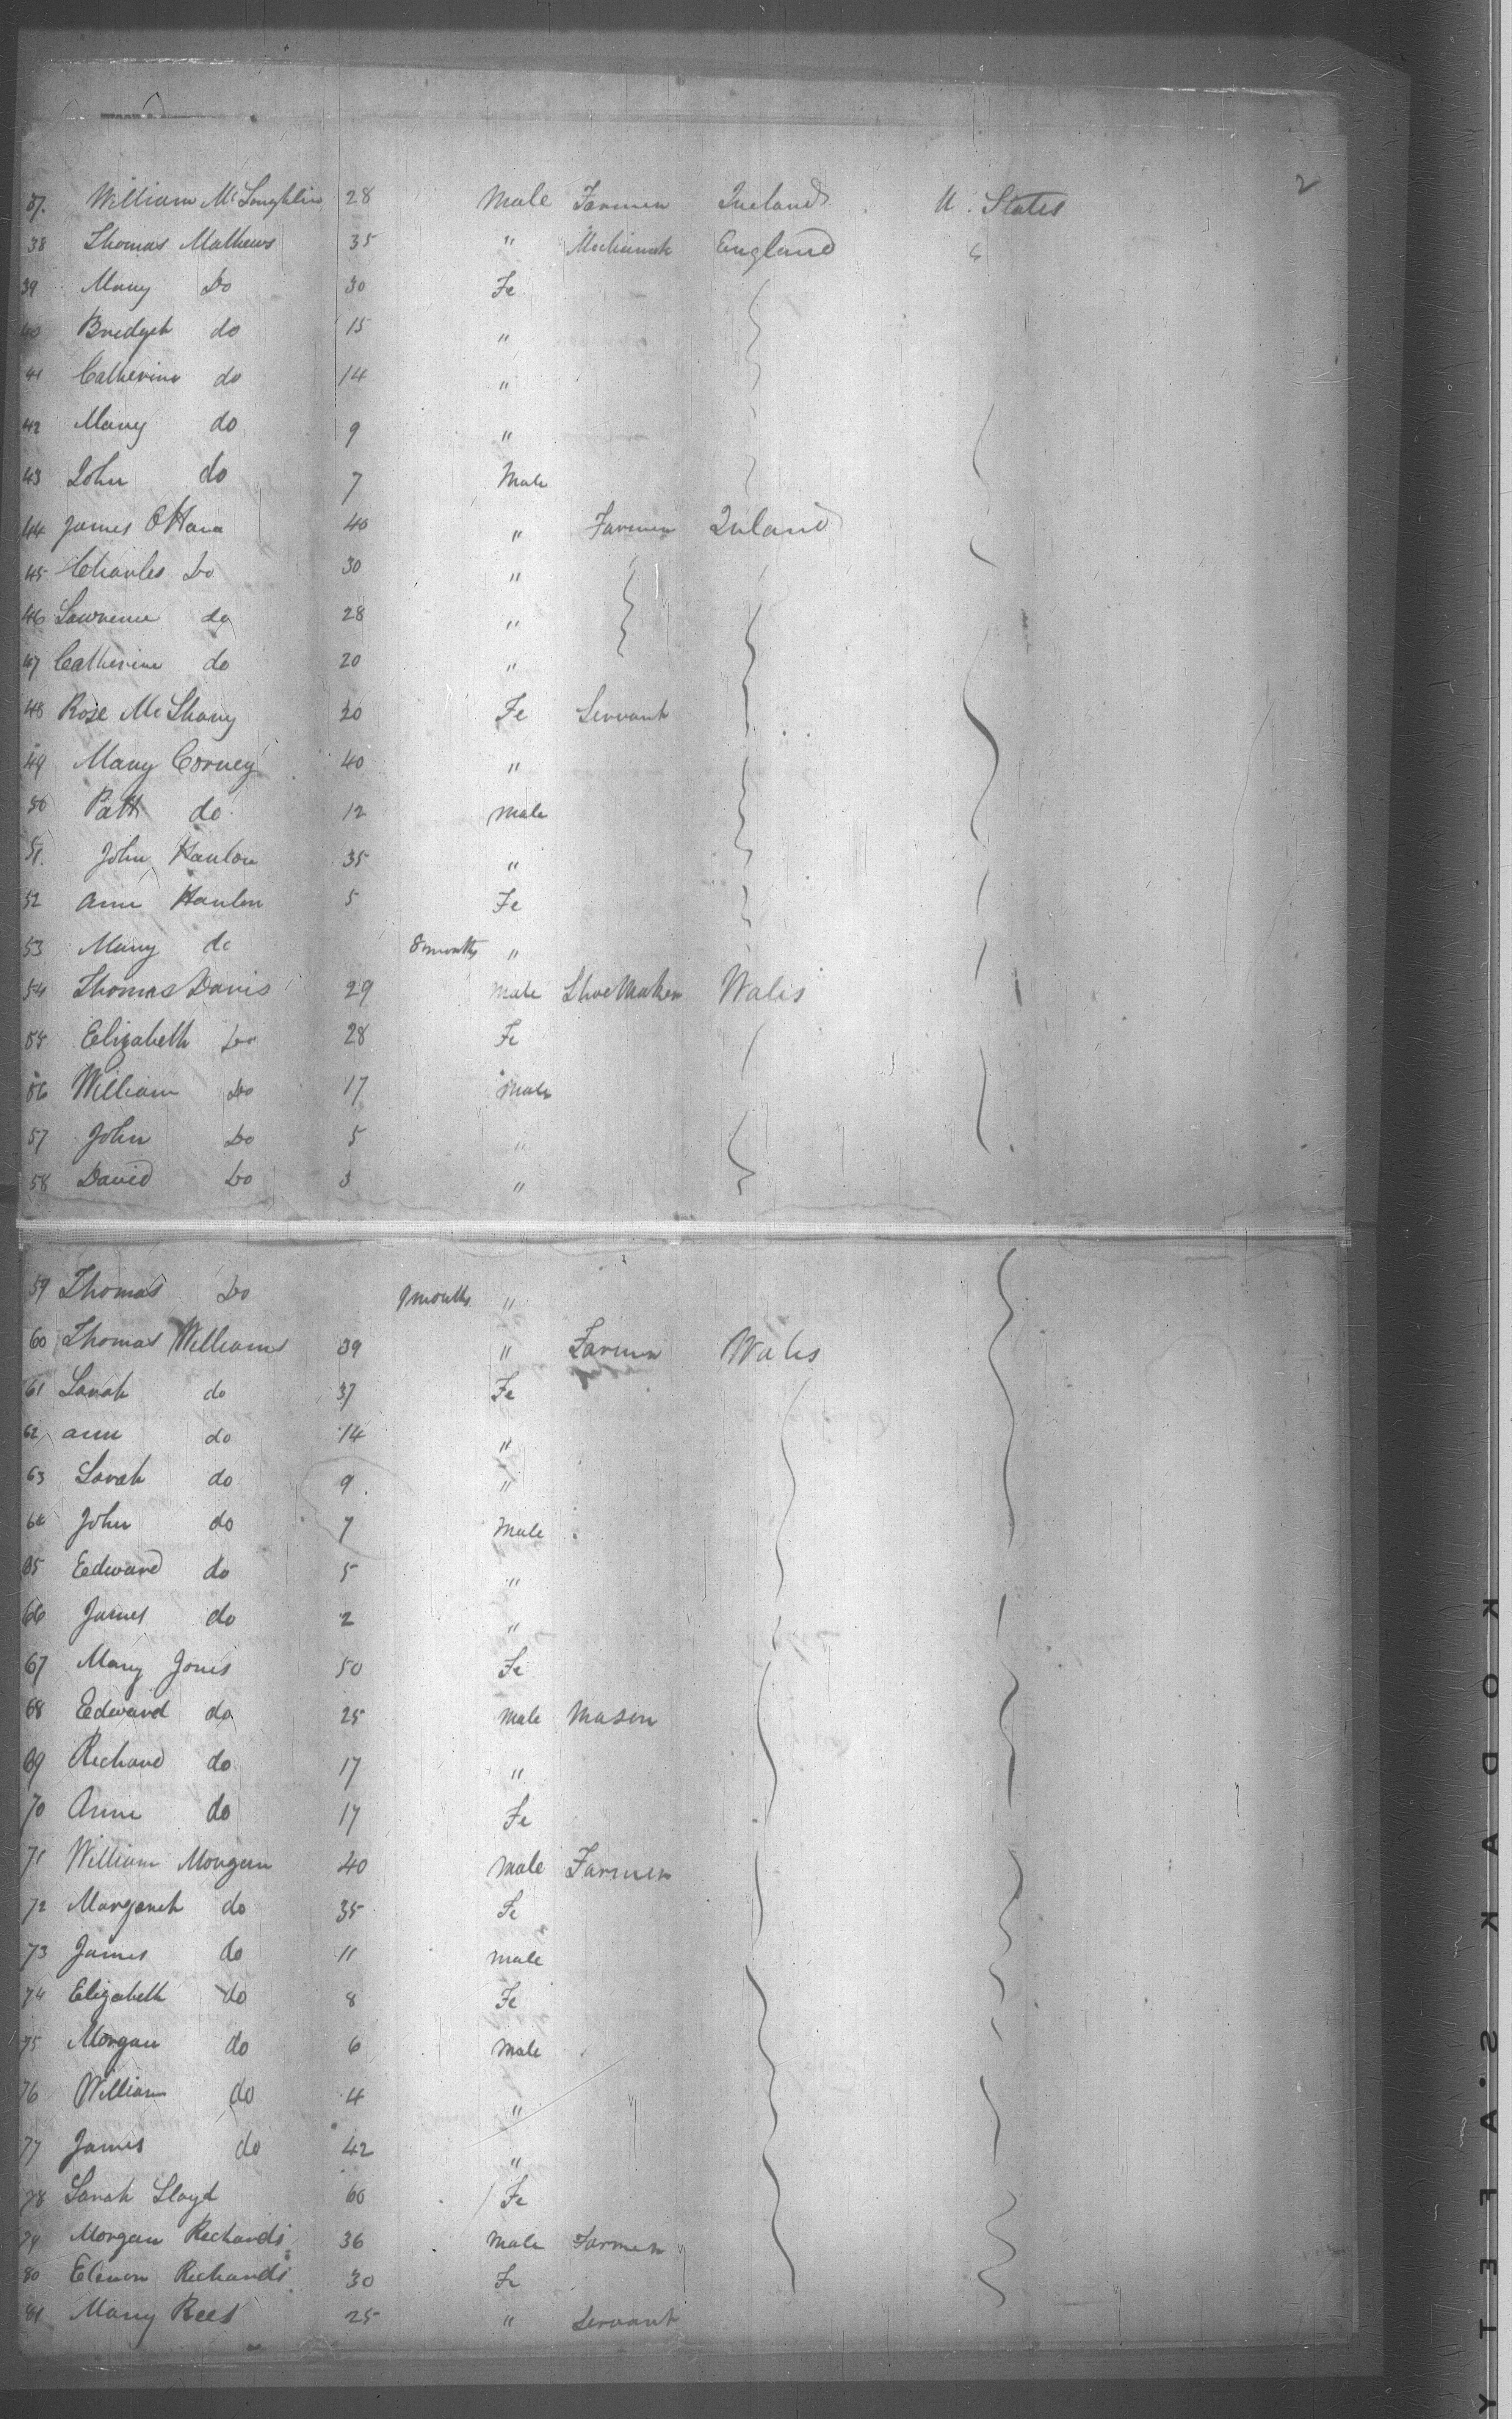 2
37. William McLoughlin 28 Male Farmer Ireland U. States
38 Thomas Mathews 35 " Mechanick England "
39 Mary Do 30 Fe
40 Bridget do 15 "
41 Catherine do 14 "
42 Mary do 9 "
43 John do 7 Male
44 James O'Hara 40 " Farmer Ireland
45 Charles Do 30 "
46 Lawrence do 28 "
47 Catherine do 20 "
48 Rose McShary 20 Fe Servant
49 Mary Corney 40 "
50 Patk do 12 male
51. John Hanlon 35 "
52 Ann Hanlon 5 Fe
53 Mary do 8 months "
54 Thomas Davis 29 Male Shoe Maker Wales
55 Elizabeth Do 28 Fe
56 William Do 17 Male
57 John Do 5 "
58 David Do 3 "
59 Thomas Do 9 months "
60 Thomas Williams 39 " Farmer Wales
61 Sarah do 37 Fe
62 ann do 14 "
63 Sarah do 9 "
64 John do 7 Male
65 Edward do 5 "
66 James do 2 "
67 Mary Jones 50 Fe
68 Edward do 25 Male Mason
69 Richard do 17 "
70 Anne do 17 Fe
71 William Morgan 40 Male Farmer
72 Margaret do 35 Fe
73 James do 11 male
74 Elizabeth do 8 Fe
75 Morgan do 6 Male
76 William do 4 "
77 James do 42 "
78 Sarah Lloyd 60 Fe
79 Morgan Richards 36 Male Farmer
80 Elenor Richards 30 Fe
81 Mary Rees 25 " Servant
KODAK SAFETY